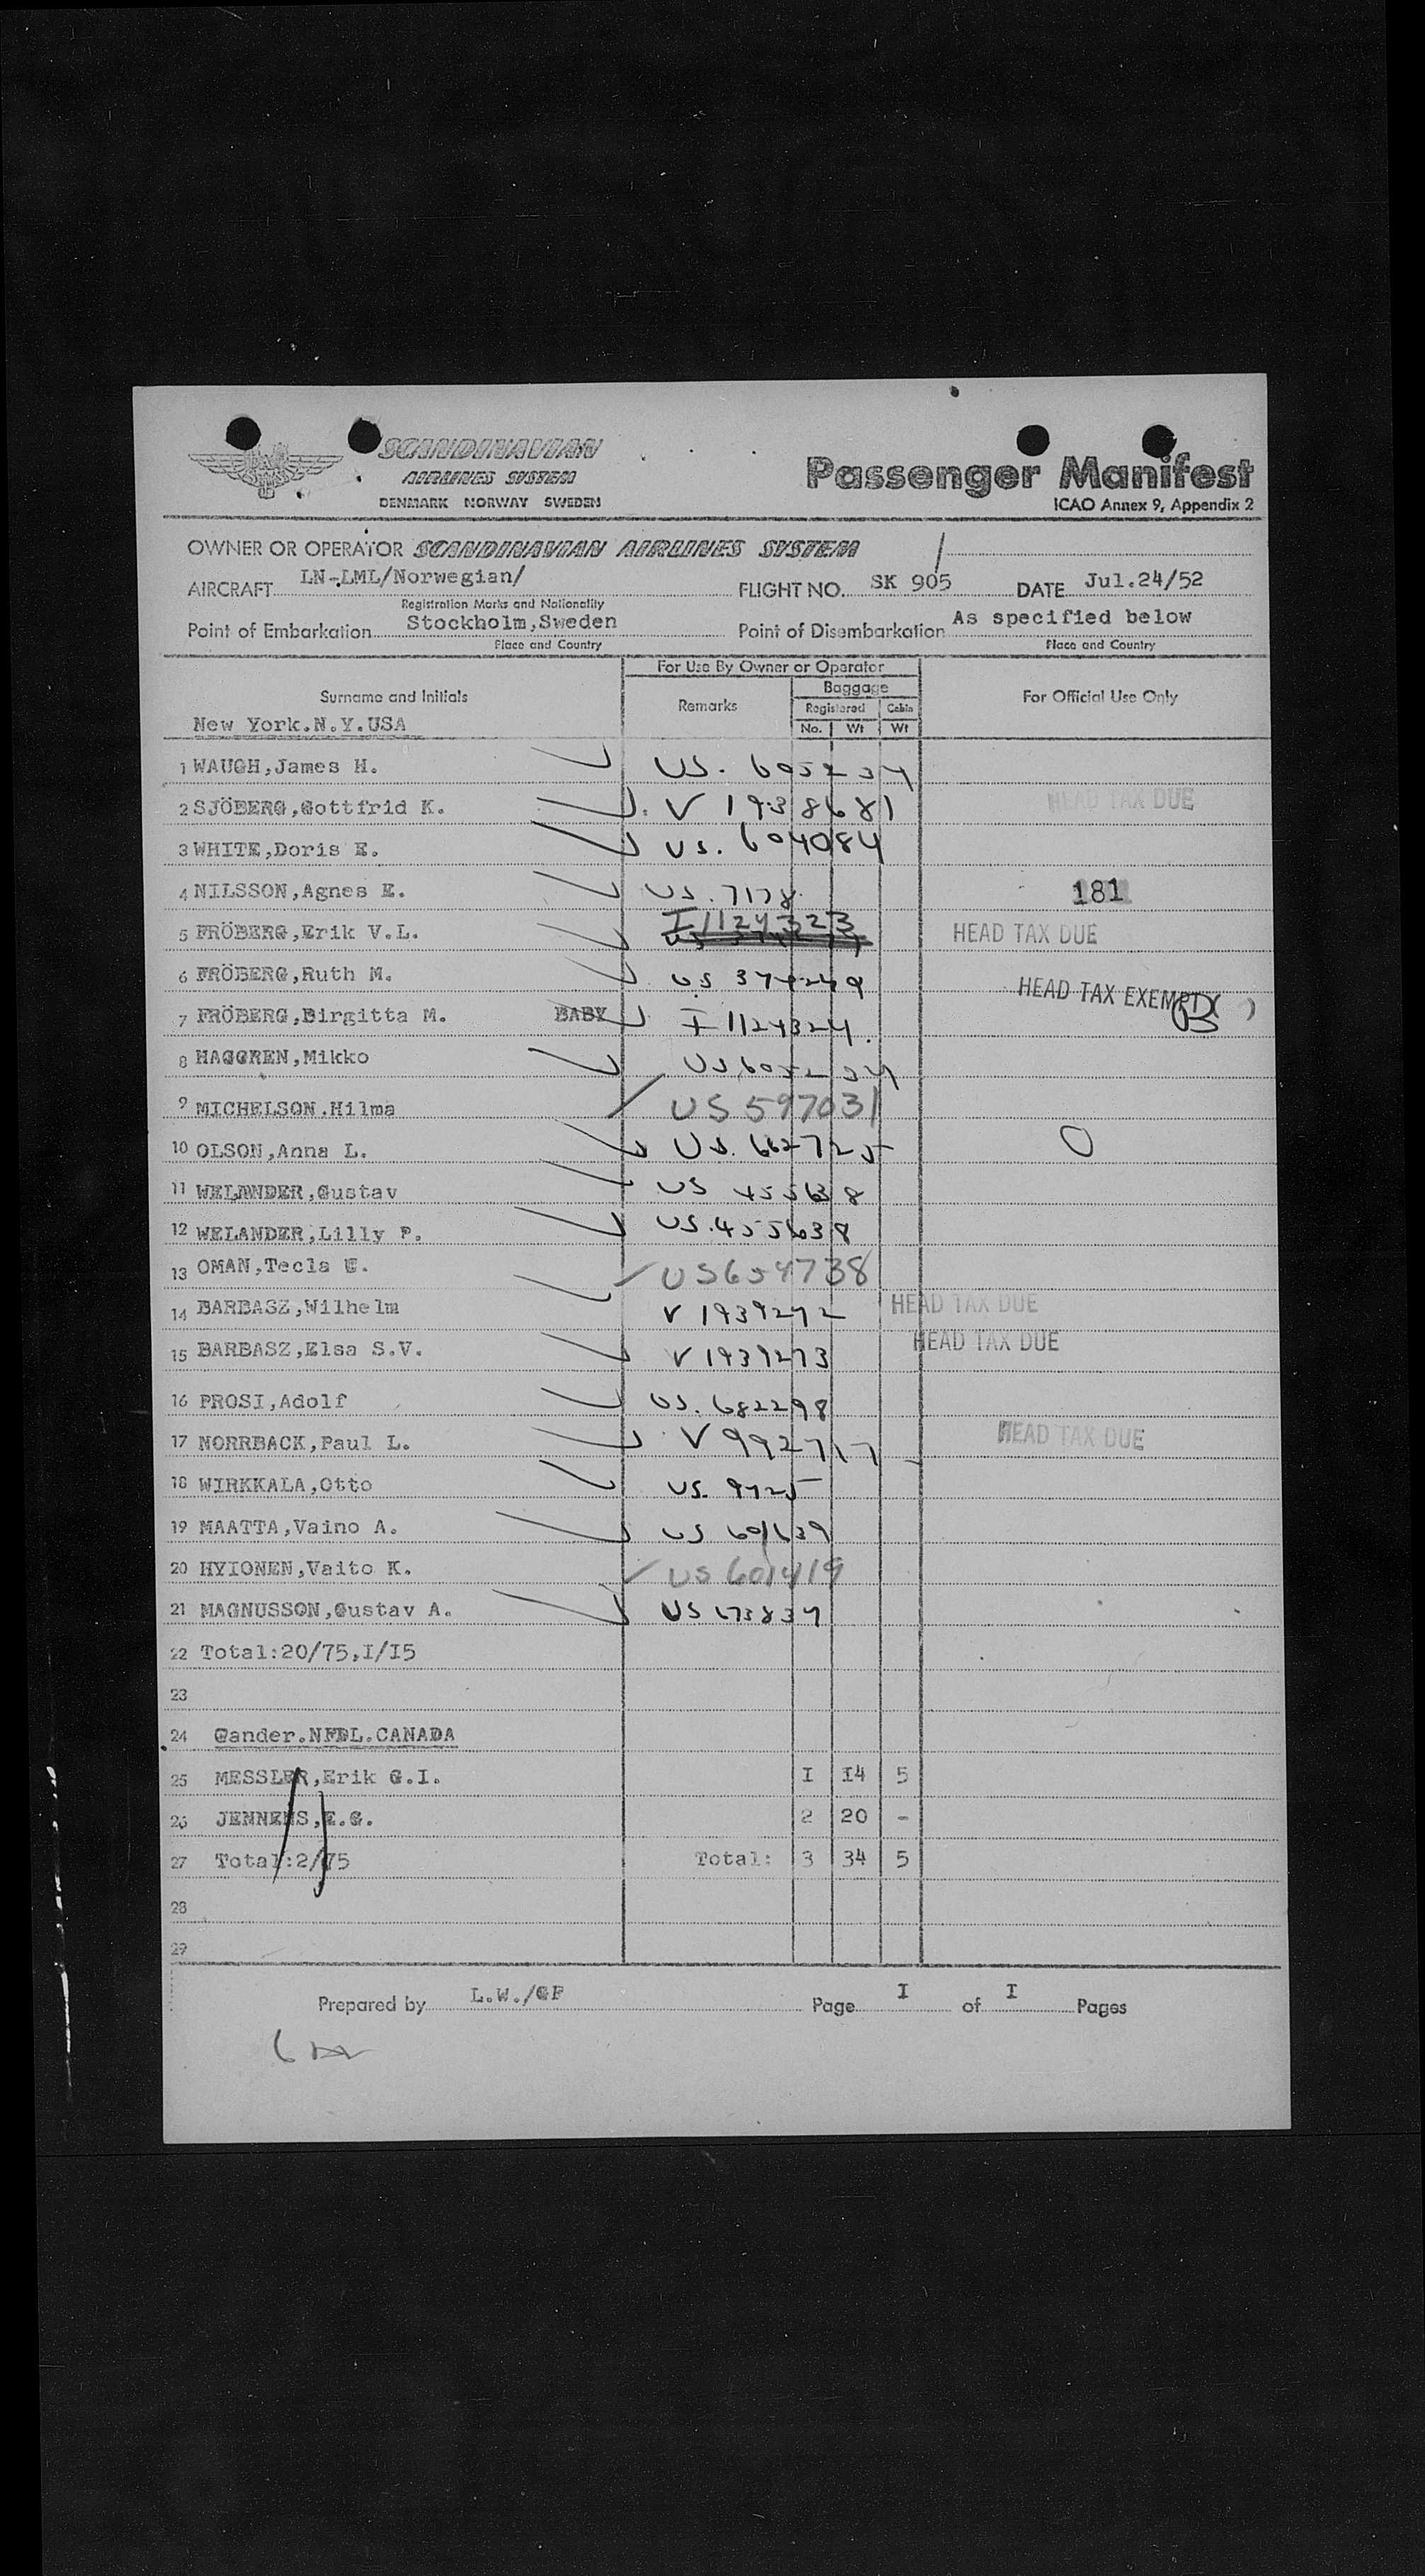 SCANDINAVIAN
AIRLINES SYSTEM
DENMARK NORWAY SWEDEN
Passenger Manifest
ICAO Annex 9, Appendix 2
OWNER OR OPERATOR SCANDINAVIAN AIRLINES SYSTEM
AIRCRAFT LN-LML/Norwegian/ FLIGHT NO. SK 905 DATE Jul.24/52
Registration Marks and Nationality
Point of Embarkation Stockholm,Sweden Point of Disembarkation As specified below
Place and Country Place and Country
For Use By Owner or Operator
Surname and Initials Remarks Baggage For Official Use Only
Registered Cabin
No. Wt Wt
New York.N.Y.USA
1 WAUGH,James H. US.
2 SJÖBERG,Gottfrid K. V 1938681 HEAD TAX DUE
3 WHITE,Doris E. US. 604084
4 NILSSON,Agnes E. US. 7178 181
5 FRÖBERG,Erik V.L. I 1124323 HEAD TAX DUE
6 FRÖBERG,Ruth M. US 374249 HEAD TAX EXEMPT
7 FRÖBERG,Birgitta M. BABY I 1124324
8 HAGGREN,Mikko US
9 MICHELSON.Hilma US 597031
10 OLSON,Anna L. US. 662725
11 WELANDER,Gustav US 455638
12 WELANDER,Lilly P. US.455638
13 OMAN,Tecla E. US654738
14 BARBASZ,Wilhelm V 1939272 HEAD TAX DUE
15 BARBASZ,Elsa S.V. V 1939273 HEAD TAX DUE
16 PROSI,Adolf US. 682298
17 NORRBACK,Paul L. V 992717 HEAD TAX DUE
18 WIRKKALA,Otto US. 9725
19 MAATTA,Vaino A. US 601639
20 HYIONEN,Vaito K. US 601419
21 MAGNUSSON,Gustav A. US 673837
22 Total:20/75,I/I5
23
24 Gander.NFDL.CANADA
25 MESSLER,Erik G.I. I I4 5
26 JENNENS,E.G. 2 20 -
27 Total:2/75 Total: 3 34 5
28
29
Prepared by L.W./GF Page I of I Pages